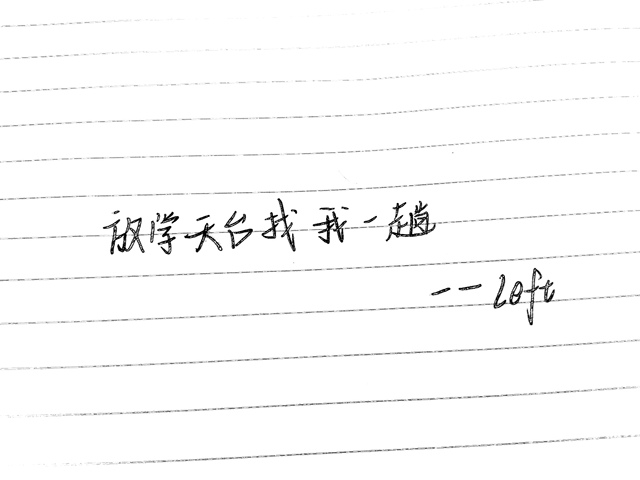 放学天台找我一趟
——Loft